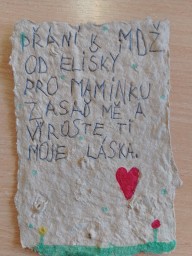 PŘÁNÍ K MDŽ
OD ELIŠKY
PRO MAMINKU
ZASAĎ MĚ A
VYROSTE TI
MOJE LÁSKA.